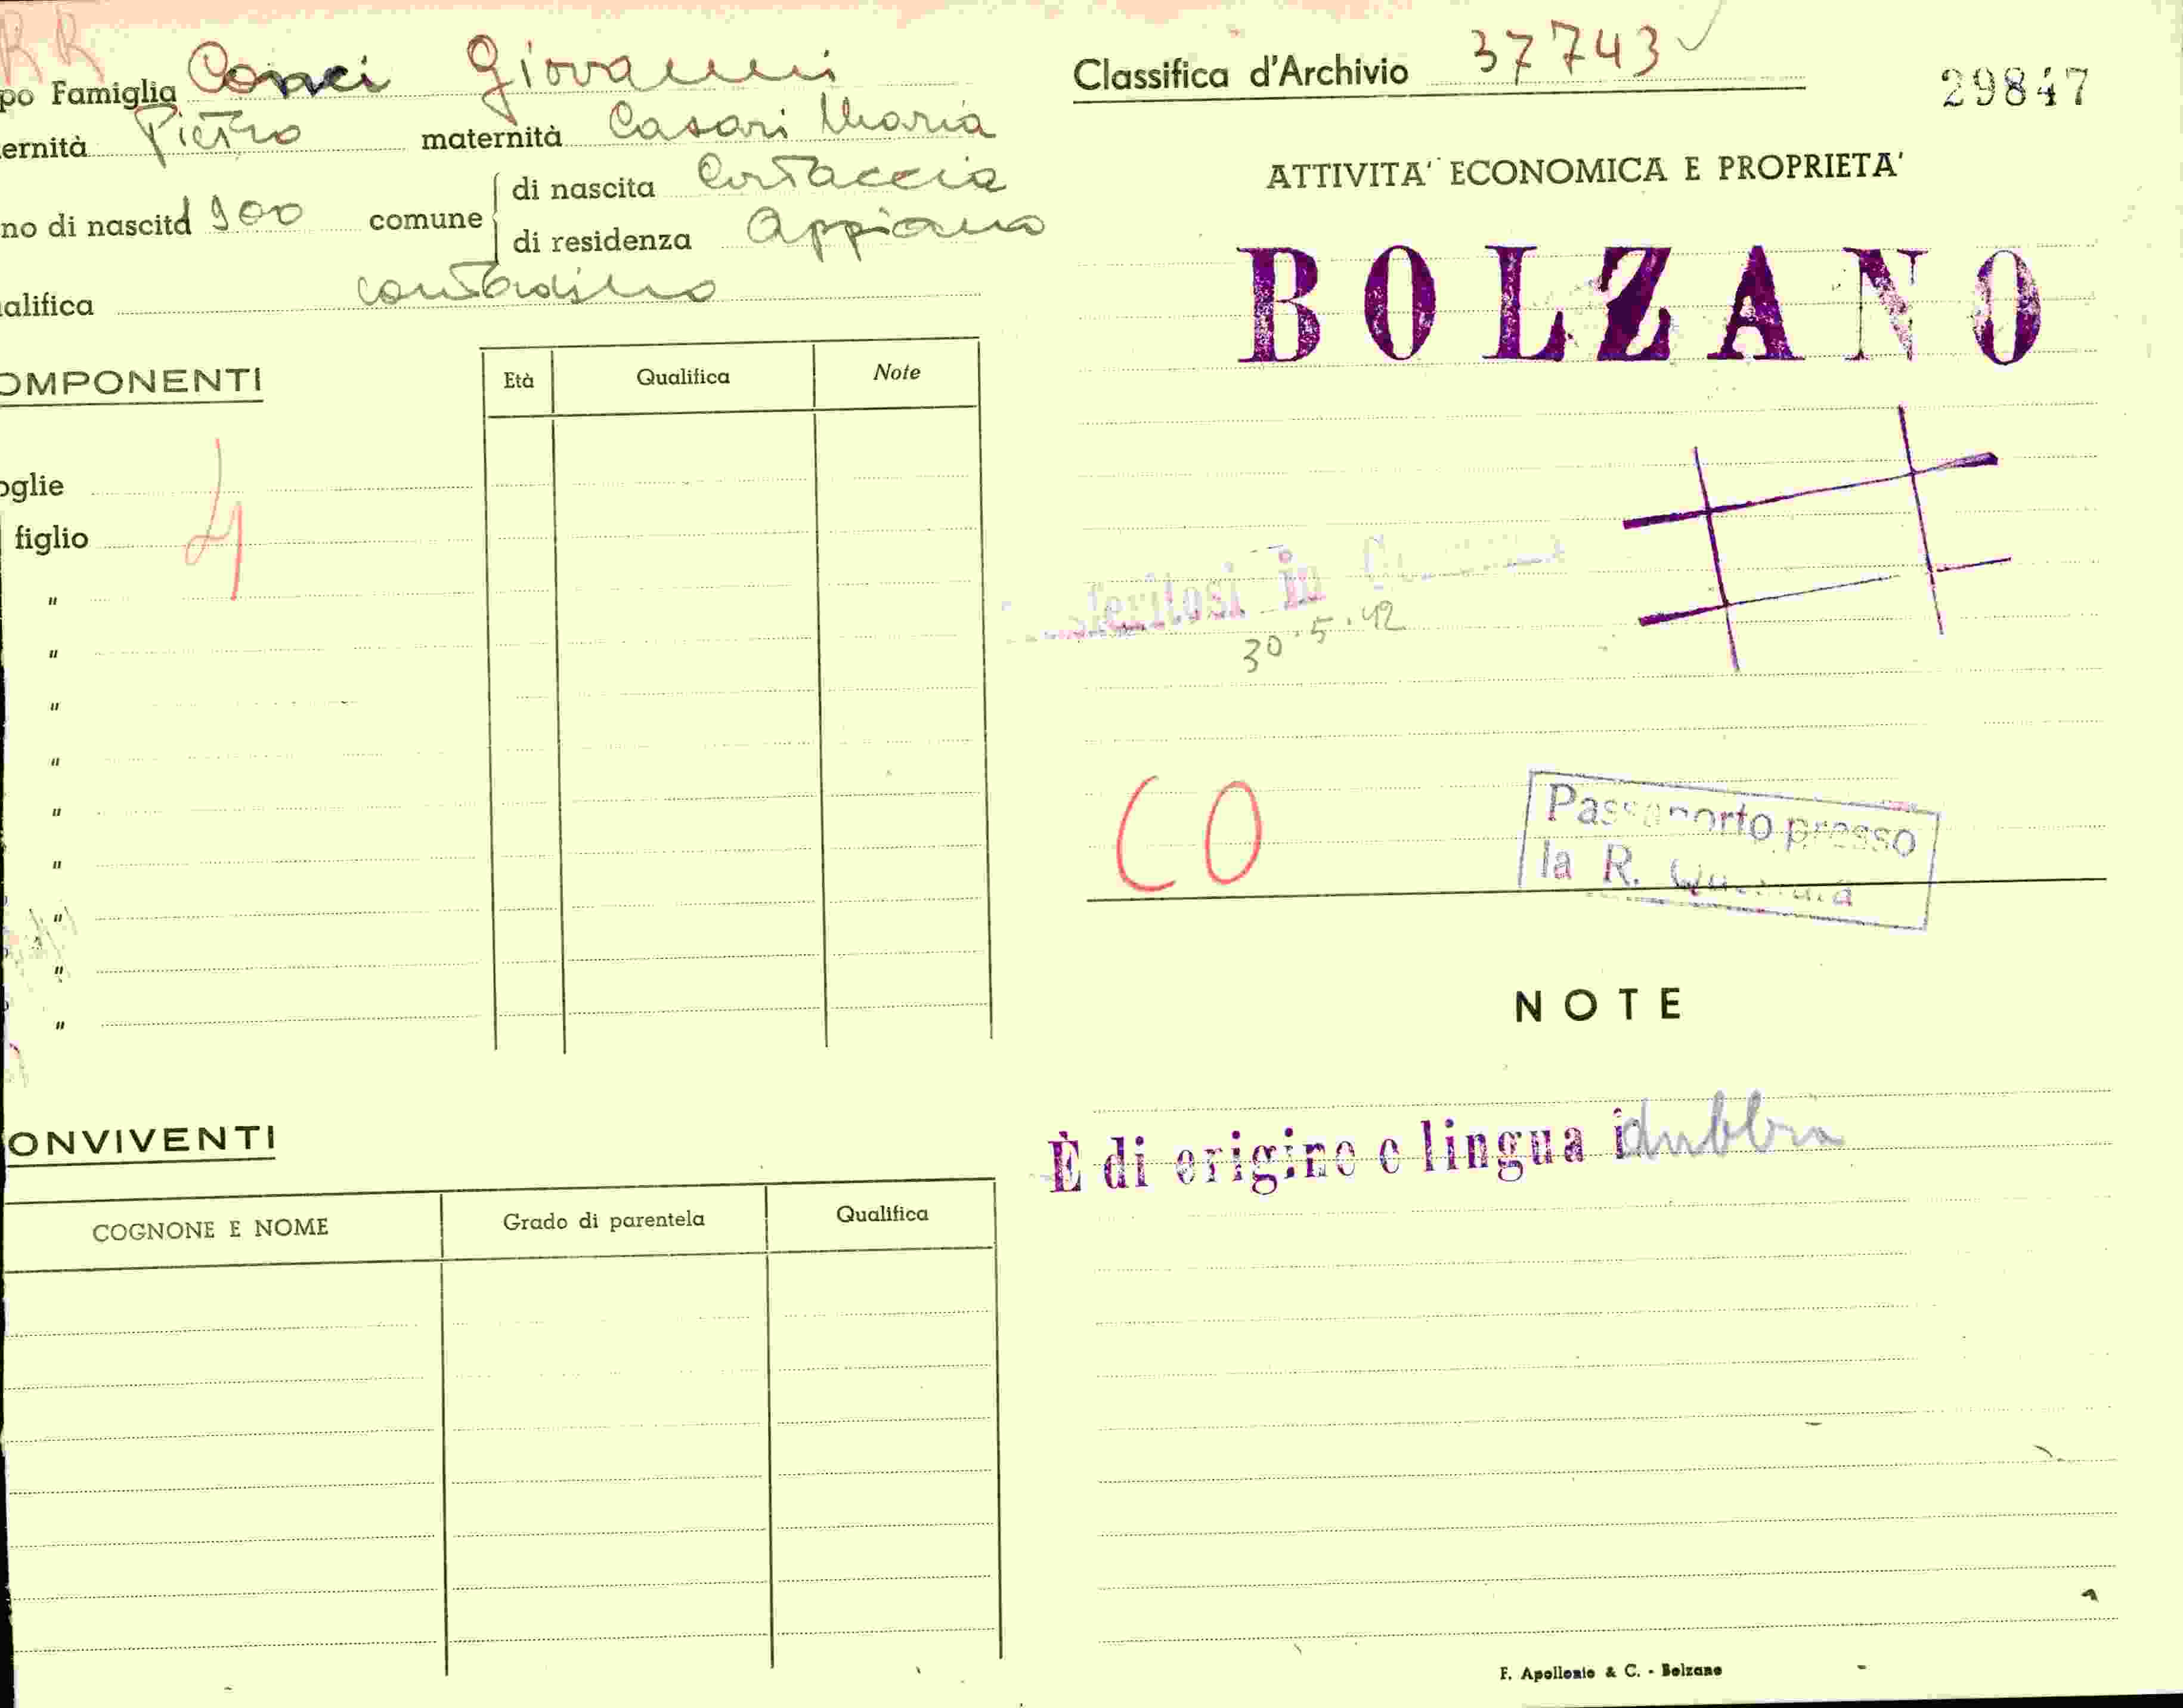 RR
po Famiglia Conci Giovanni
ernità Pietro maternità Casari Maria
no di nascita 900 comune di nascita Cortaccia
di residenza Appiano
alifica contadino
OMPONENTI
Età Qualifica Note
oglie
figlio
4
"
"
"
"
"
"
"
"
"
ONVIVENTI
COGNONE E NOME Grado di parentela Qualifica
Classifica d'Archivio 37743
29847
ATTIVITA' ECONOMICA E PROPRIETA'
BOLZANO
feritosi in
30.5.42
CO
Passaporto presso
la R.
NOTE
È di origine e lingua i dubbia
F. Apollonio & C. - Bolzano